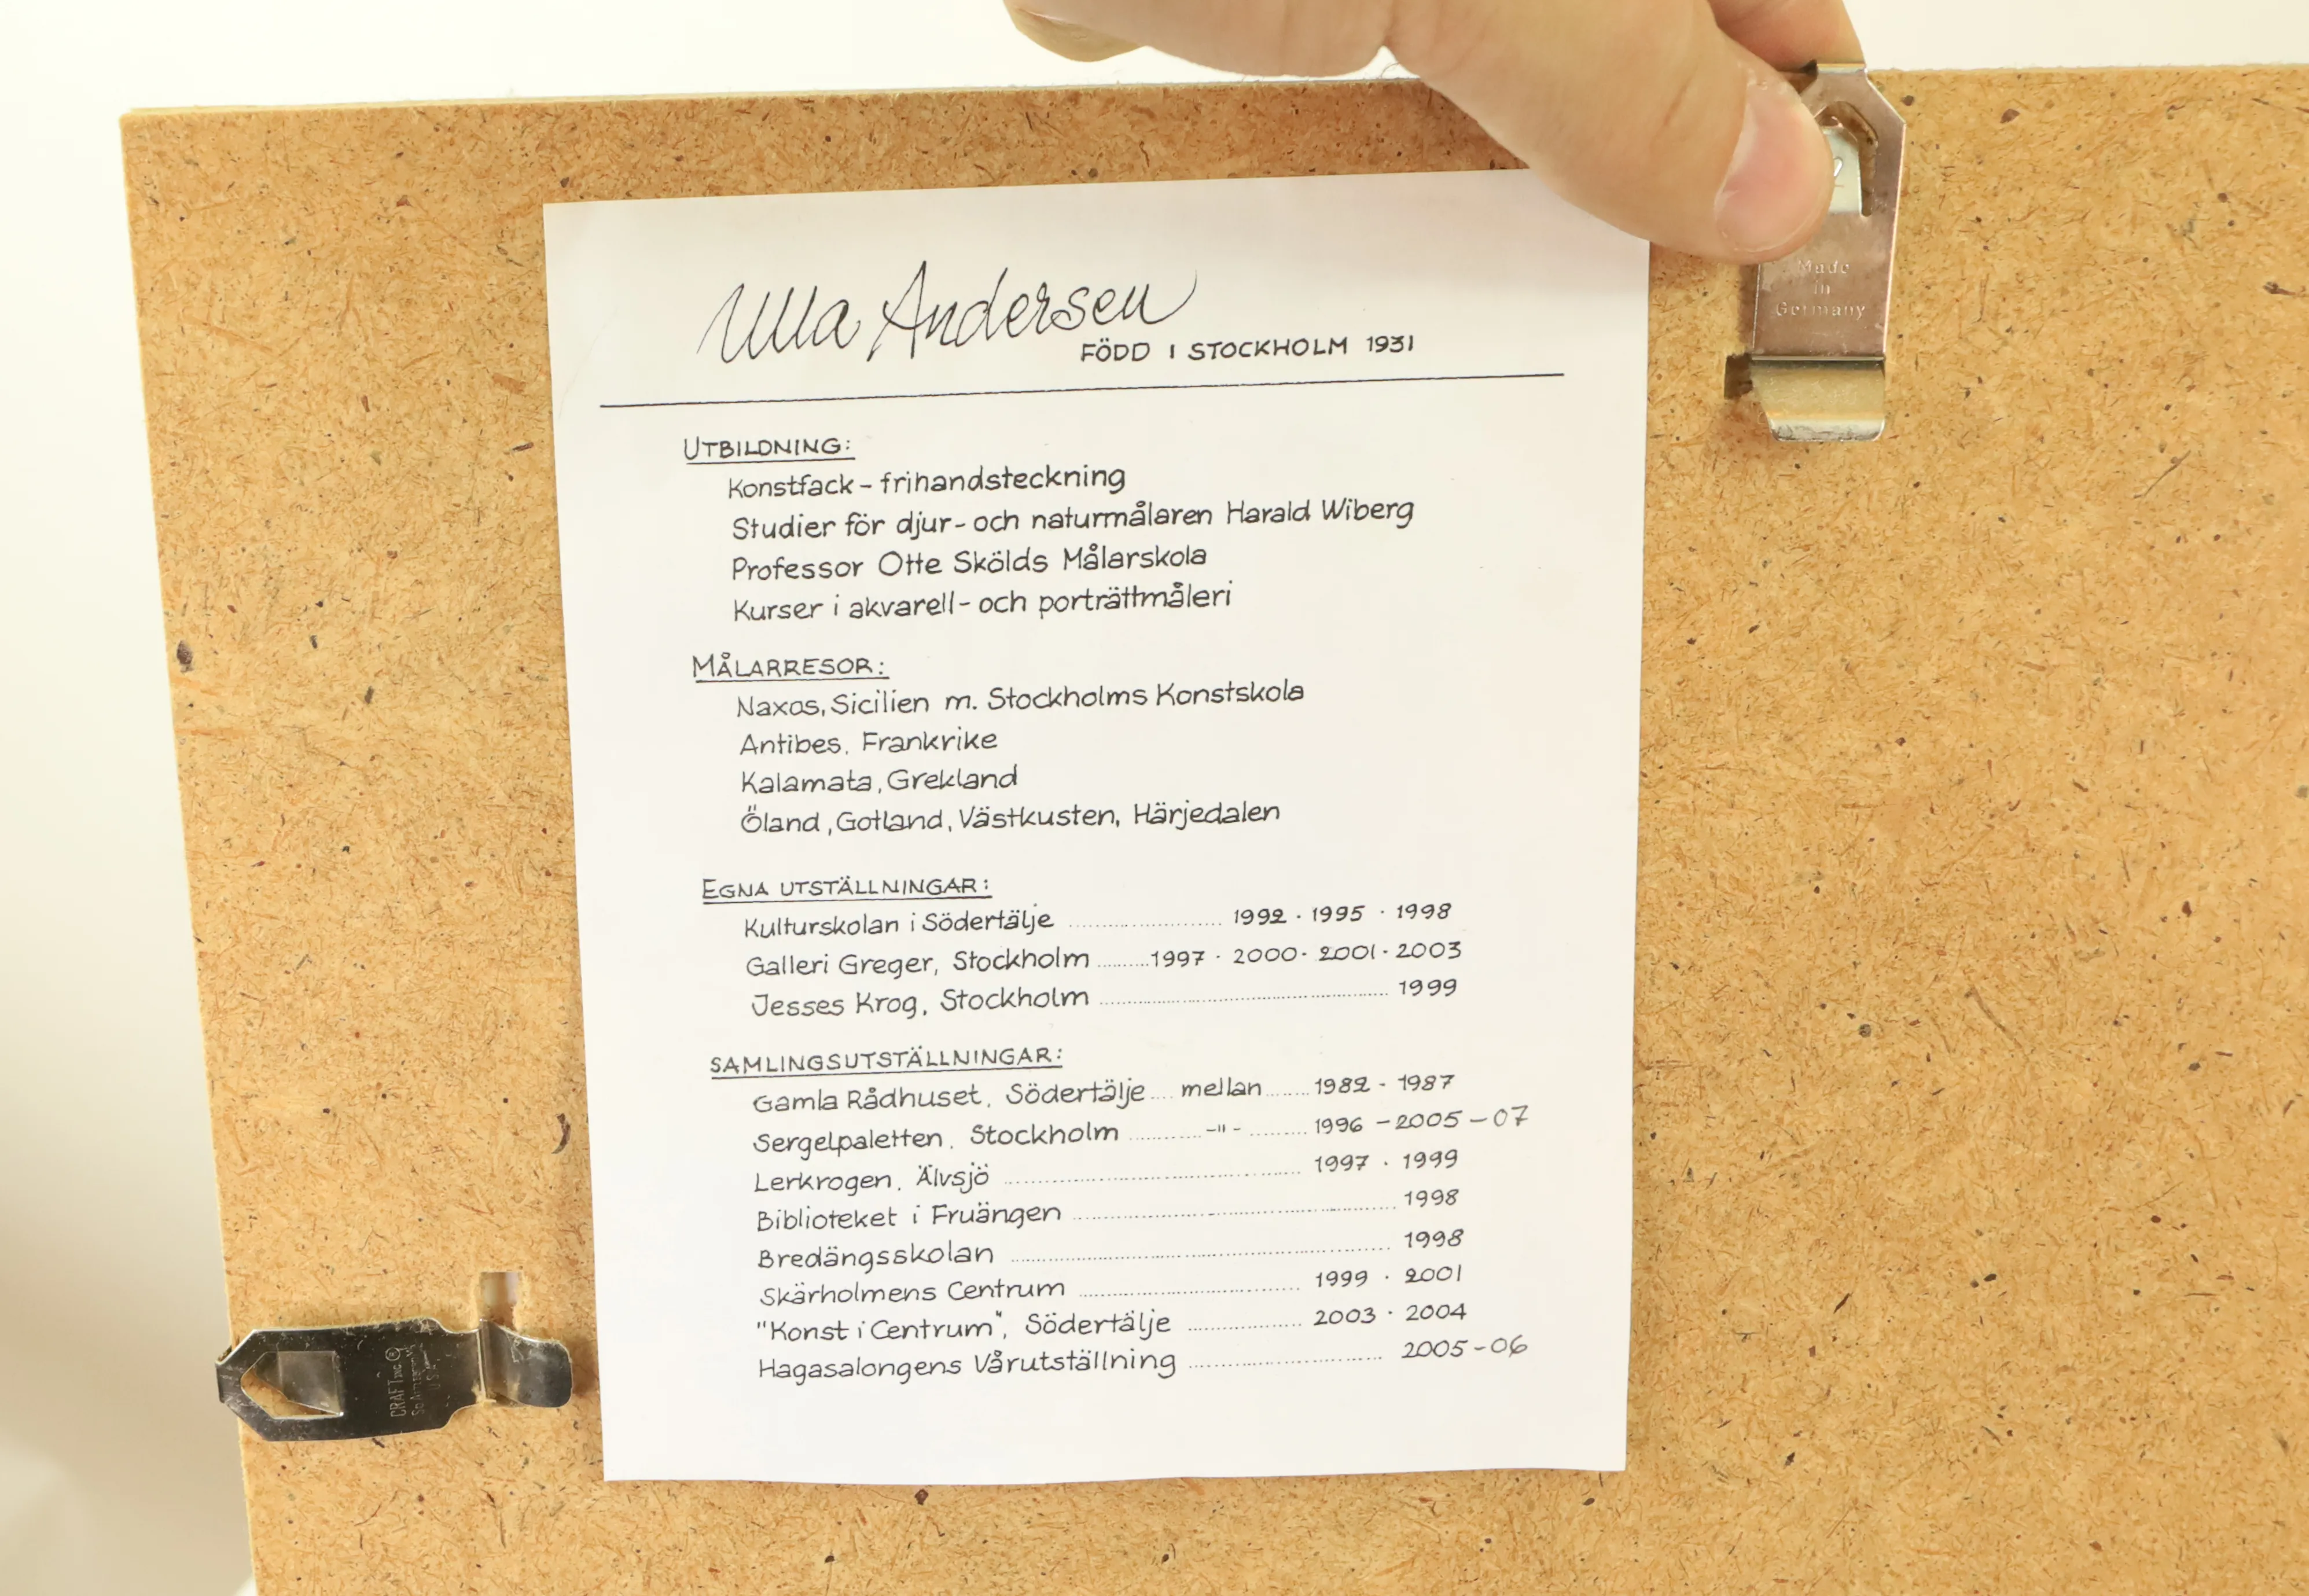 Ulla Andersen
FÖDD I STOCKHOLM 1931
UTBILDNING:
Konstfack - frihandsteckning
Studier för djur- och naturmålaren Harald Wiberg
Professor Otte Skölds Målarskola
Kurser i akvarell- och porträttmåleri
MÅLARRESOR:
Naxos, Sicilien m. Stockholms Konstskola
Antibes, Frankrike
Kalamata, Grekland
Öland, Gotland, Västkusten, Härjedalen
EGNA UTSTÄLLNINGAR:
Kulturskolan i Södertälje ........ 1992 · 1995 · 1998
Galleri Greger, Stockholm ........ 1997 · 2000 · 2001 · 2003
Jesses Krog, Stockholm ........ 1999
SAMLINGSUTSTÄLLNINGAR:
Gamla Rådhuset, Södertälje .... mellan ........ 1982 - 1987
Sergelpaletten, Stockholm ........ -"- ........ 1996 - 2005 - 07
Lerkrogen, Älvsjö ........ 1997 · 1999
Biblioteket i Fruängen ........ 1998
Bredängsskolan ........ 1998
Skärholmens Centrum ........ 1999 · 2001
"Konst i Centrum", Södertälje ........ 2003 · 2004
Hagasalongens Vårutställning ........ 2005 - 06
Made
in
Germany
CRAFT INC ®